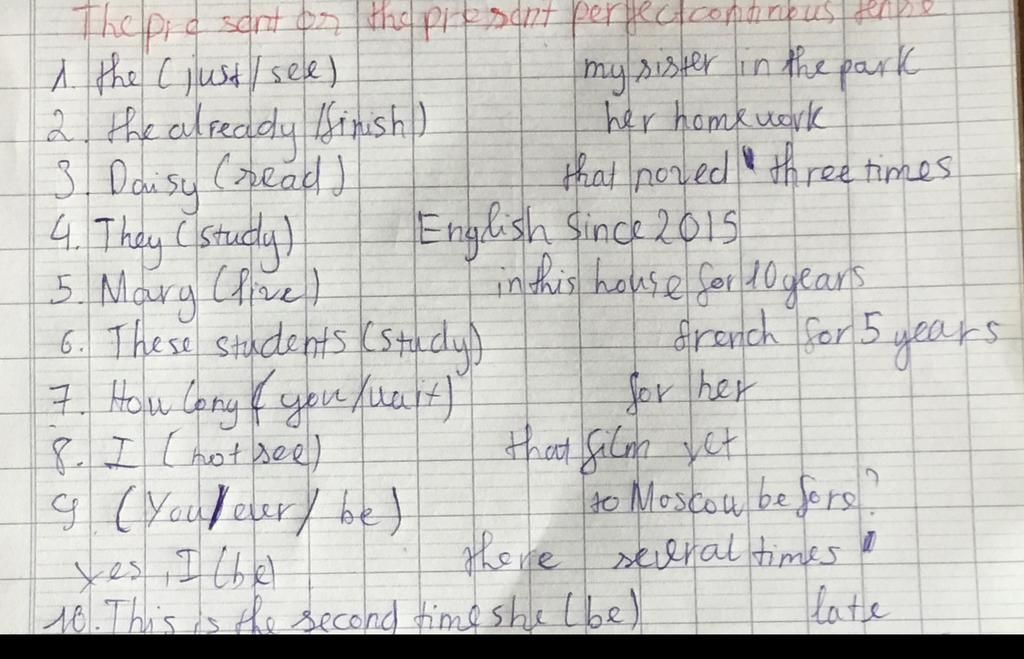 The present on the present perfect continous tense
1. the (just/see) my sister in the park
2. the already (finish) her homework
3. Daisy (read) that noved three times
4. They (study) English since 2015
5. Mary (live) in this house for 10 years
6. These students (study) french for 5 years
7. How long (you/wait) for her
8. I (not see) that film yet
9 (You/ever/be) to Moscow before?
yes, I (be) there several times
10. This is the second time she (be) late